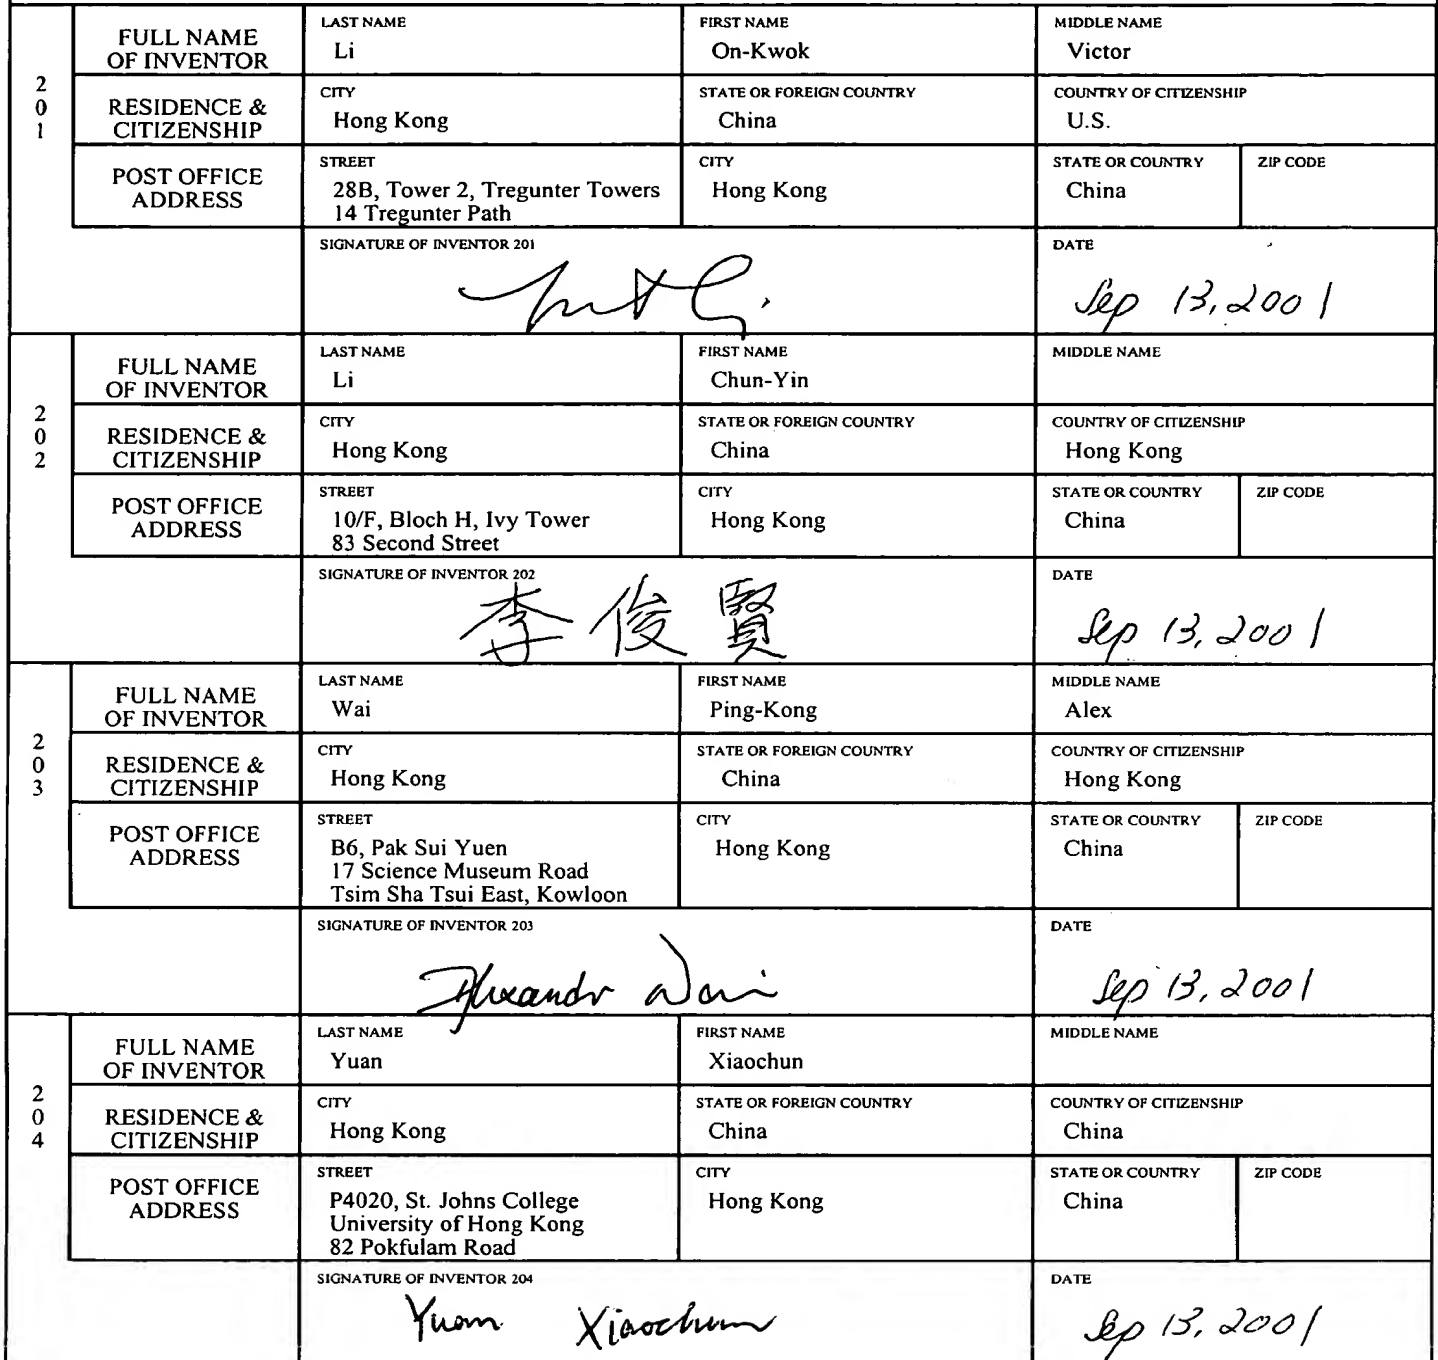 201
FULL NAME OF INVENTOR
LAST NAME
Li
FIRST NAME
On-Kwok
MIDDLE NAME
Victor
RESIDENCE & CITIZENSHIP
CITY
Hong Kong
STATE OR FOREIGN COUNTRY
China
COUNTRY OF CITIZENSHIP
U.S.
POST OFFICE ADDRESS
STREET
28B, Tower 2, Tregunter Towers
14 Tregunter Path
CITY
Hong Kong
STATE OR COUNTRY
China
ZIP CODE
SIGNATURE OF INVENTOR 201
DATE
Sep 13, 2001
202
FULL NAME OF INVENTOR
LAST NAME
Li
FIRST NAME
Chun-Yin
MIDDLE NAME
RESIDENCE & CITIZENSHIP
CITY
Hong Kong
STATE OR FOREIGN COUNTRY
China
COUNTRY OF CITIZENSHIP
Hong Kong
POST OFFICE ADDRESS
STREET
10/F, Bloch H, Ivy Tower
83 Second Street
CITY
Hong Kong
STATE OR COUNTRY
China
ZIP CODE
SIGNATURE OF INVENTOR 202
李俊賢
DATE
Sep 13, 2001
203
FULL NAME OF INVENTOR
LAST NAME
Wai
FIRST NAME
Ping-Kong
MIDDLE NAME
Alex
RESIDENCE & CITIZENSHIP
CITY
Hong Kong
STATE OR FOREIGN COUNTRY
China
COUNTRY OF CITIZENSHIP
Hong Kong
POST OFFICE ADDRESS
STREET
B6, Pak Sui Yuen
17 Science Museum Road
Tsim Sha Tsui East, Kowloon
CITY
Hong Kong
STATE OR COUNTRY
China
ZIP CODE
SIGNATURE OF INVENTOR 203
Wai
DATE
Sep 13, 2001
204
FULL NAME OF INVENTOR
LAST NAME
Yuan
FIRST NAME
Xiaochun
MIDDLE NAME
RESIDENCE & CITIZENSHIP
CITY
Hong Kong
STATE OR FOREIGN COUNTRY
China
COUNTRY OF CITIZENSHIP
China
POST OFFICE ADDRESS
STREET
P4020, St. Johns College
University of Hong Kong
82 Pokfulam Road
CITY
Hong Kong
STATE OR COUNTRY
China
ZIP CODE
SIGNATURE OF INVENTOR 204
Yuan Xiaochun
DATE
Sep 13, 2001